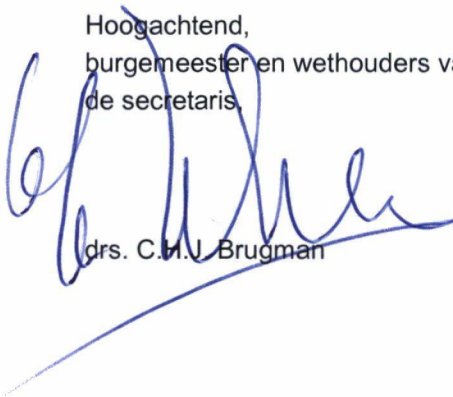 Hoogachtend,
burgemeester en wethouders va
de secretaris,
drs. C.H.J. Brugman